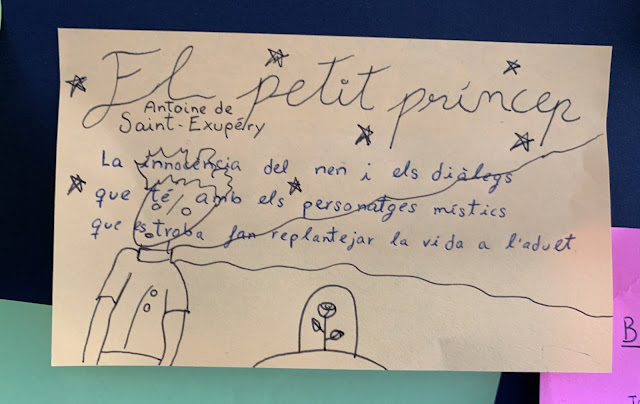 El petit príncep
Antoine de
Saint-Exupéry
La innocència del nen i els diàlegs
que té amb els personatges místics
que es troba fan replantejar la vida a l'aduet.
B